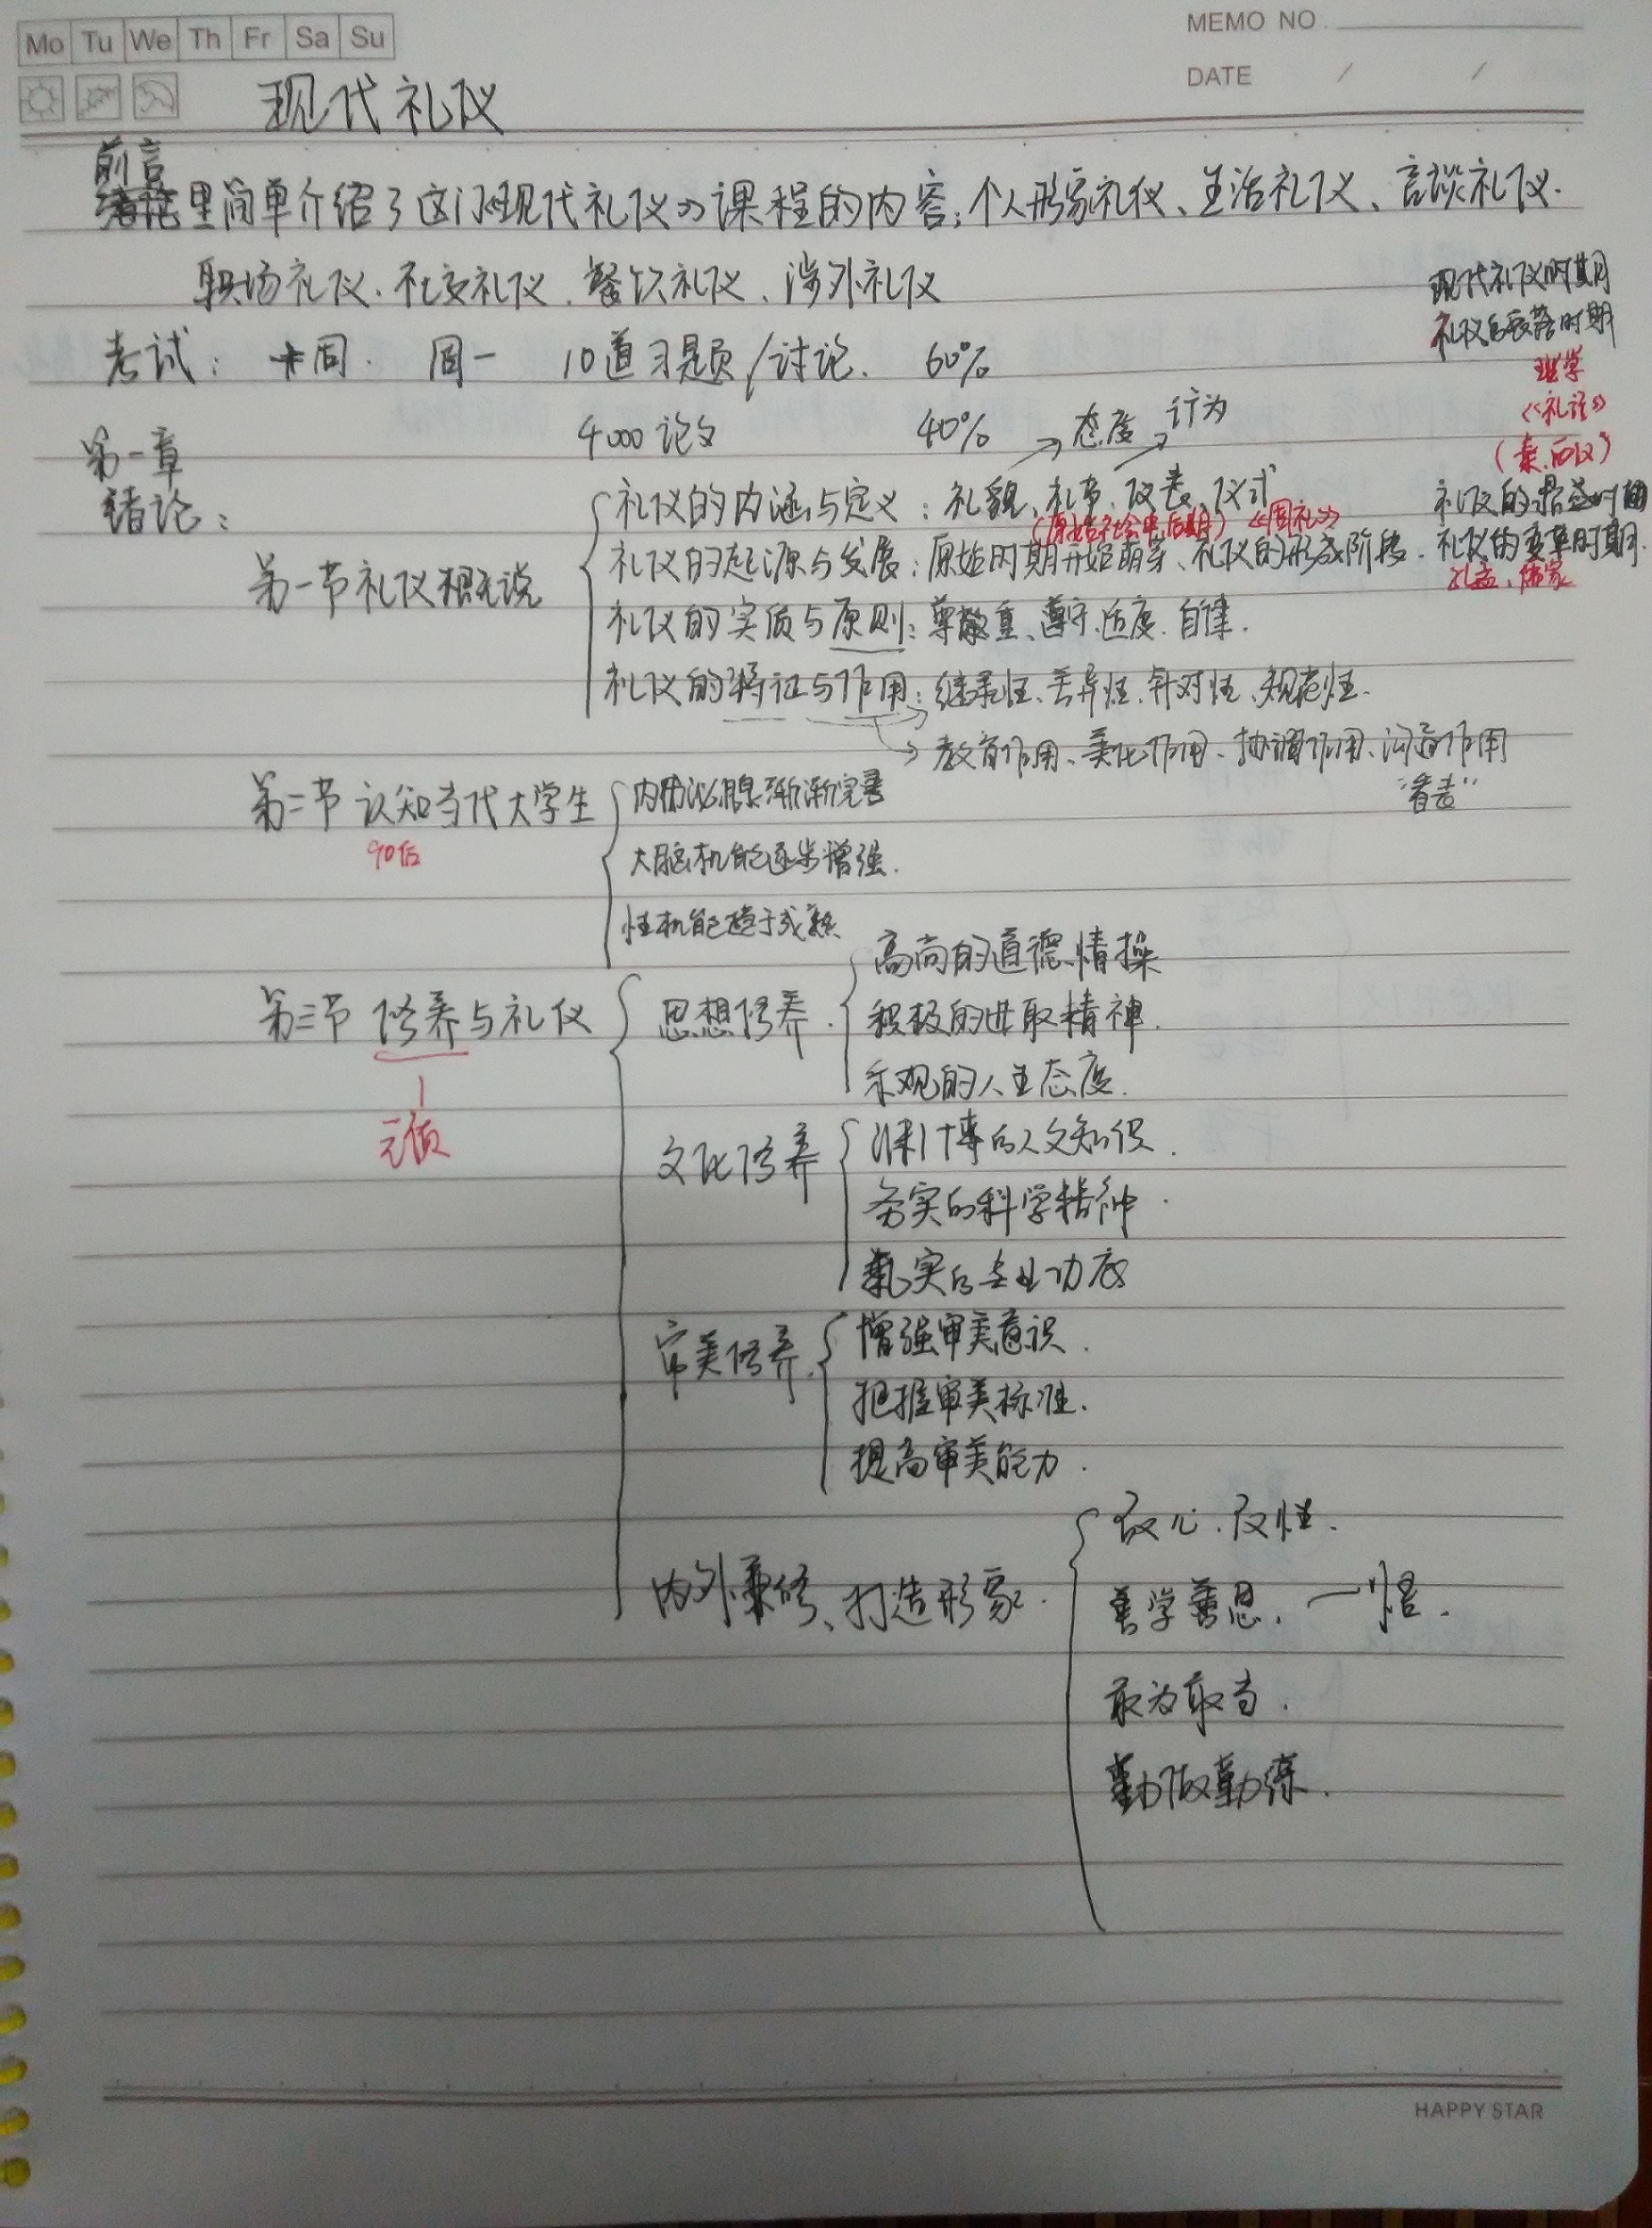 Mo Tu We Th Fr Sa Su
MEMO NO.
DATE / /
现代礼仪
前言
里简单介绍了这门《现代礼仪》课程的内容：个人形象礼仪、生活礼仪、言谈礼仪、
职场礼仪、社交礼仪、餐饮礼仪、涉外礼仪
考试： 周一 10道习题/讨论. 60%
4000论文 40%
→态度→行为
现代礼仪时期
礼仪的衰落时期
理学
(秦、西汉)
礼仪的时期
第一章
绪论：
第一节 礼仪概说
礼仪的内涵与定义：礼貌、礼节、仪表、仪式
(原始社会中后期) 《周礼》
礼仪的起源与发展：原始时期开始萌芽、礼仪的形成阶段. 礼仪的变革时期.
孔孟、儒家
礼仪的实质与原则：尊重、遵守、适度. 自律.
礼仪的特征与作用：继承性、差异性、针对性、规范性.
→教育作用、美化作用、协调作用、沟通作用
第二节 认知当代大学生
90后
内分泌腺渐渐完善
大脑机能逐步增强.
性机能趋于成熟
第三节 修养与礼仪
思想修养.
高尚的道德情操
积极的进取精神.
乐观的人生态度.
文化修养
渊博的人文知识.
务实的科学精神.
扎实的专业功底
审美修养.
增强审美意识.
把握审美标准.
提高审美能力.
内外兼修、打造形象.
善学善思. —悟.
敢为敢当.
勤做勤练.
HAPPY STAR